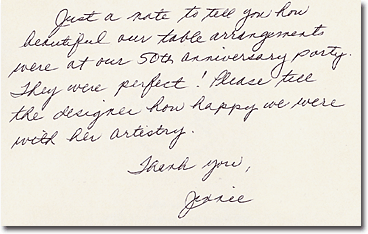 Just a note to tell you how
beautiful our table arrangements
were at our 50th anniversary party.
They were perfect! Please tell
the designer how happy we were
with her artistry.
Thank you,
Jennie